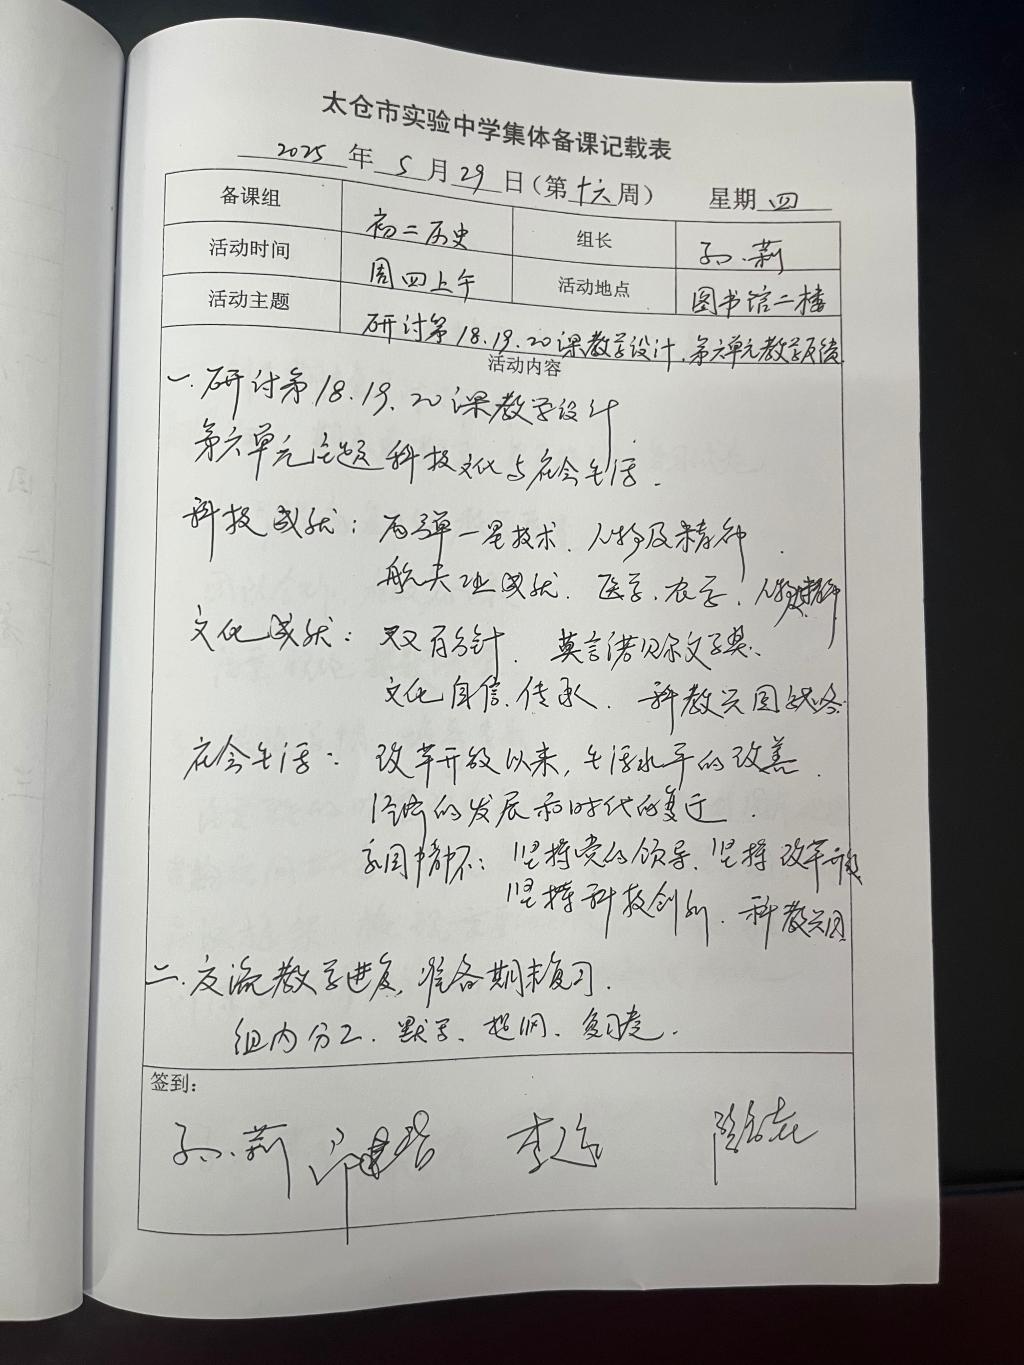 太仓市实验中学集体备课记载表
2025年5月29日(第十六周) 星期四
备课组 初二历史 组长 孙莉
活动时间 周四上午 活动地点 图书馆二楼
活动主题 研讨第18.19.20课教学设计.第六单元教学反馈
活动内容
一.研讨第18.19.20课教学设计
第六单元主题科技文化与社会生活.
科技成就:两弹一星技术.人物及精神.
航天工业成就.医学.农学.人物精神
文化成就:双百方针.莫言诺贝尔文学奖.
文化自信.传承.科教兴国战略
社会生活:改革开放以来,生活水平的改善.
经济的发展和时代的变迁.
家国情怀:坚持党的领导.坚持改革开放
坚持科技创新.科教兴国
二.交流教学进度,准备期末复习.
组内分工.默写.提纲.复习卷.
签到:
孙莉